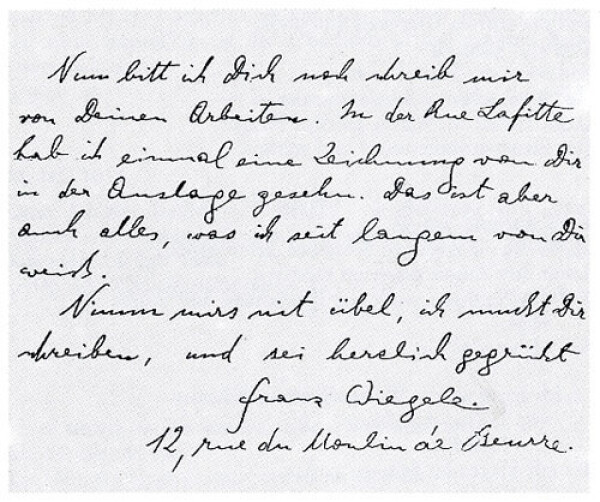 Nun bitt ich Dich noch schreib mir
von Deinen Arbeiten. In der Rue Lafitte
hab ich einmal eine Zeichnung von Dir
in der Auslage gesehn. Das ist aber
auch alles, was ich seit langem von Dir
weiß.
Nimm mirs nit übel, ich musst Dir
schreiben, und sei herzlich gegrüßt
Franz Wiegele.
12, rue du Moulin de Beurre.